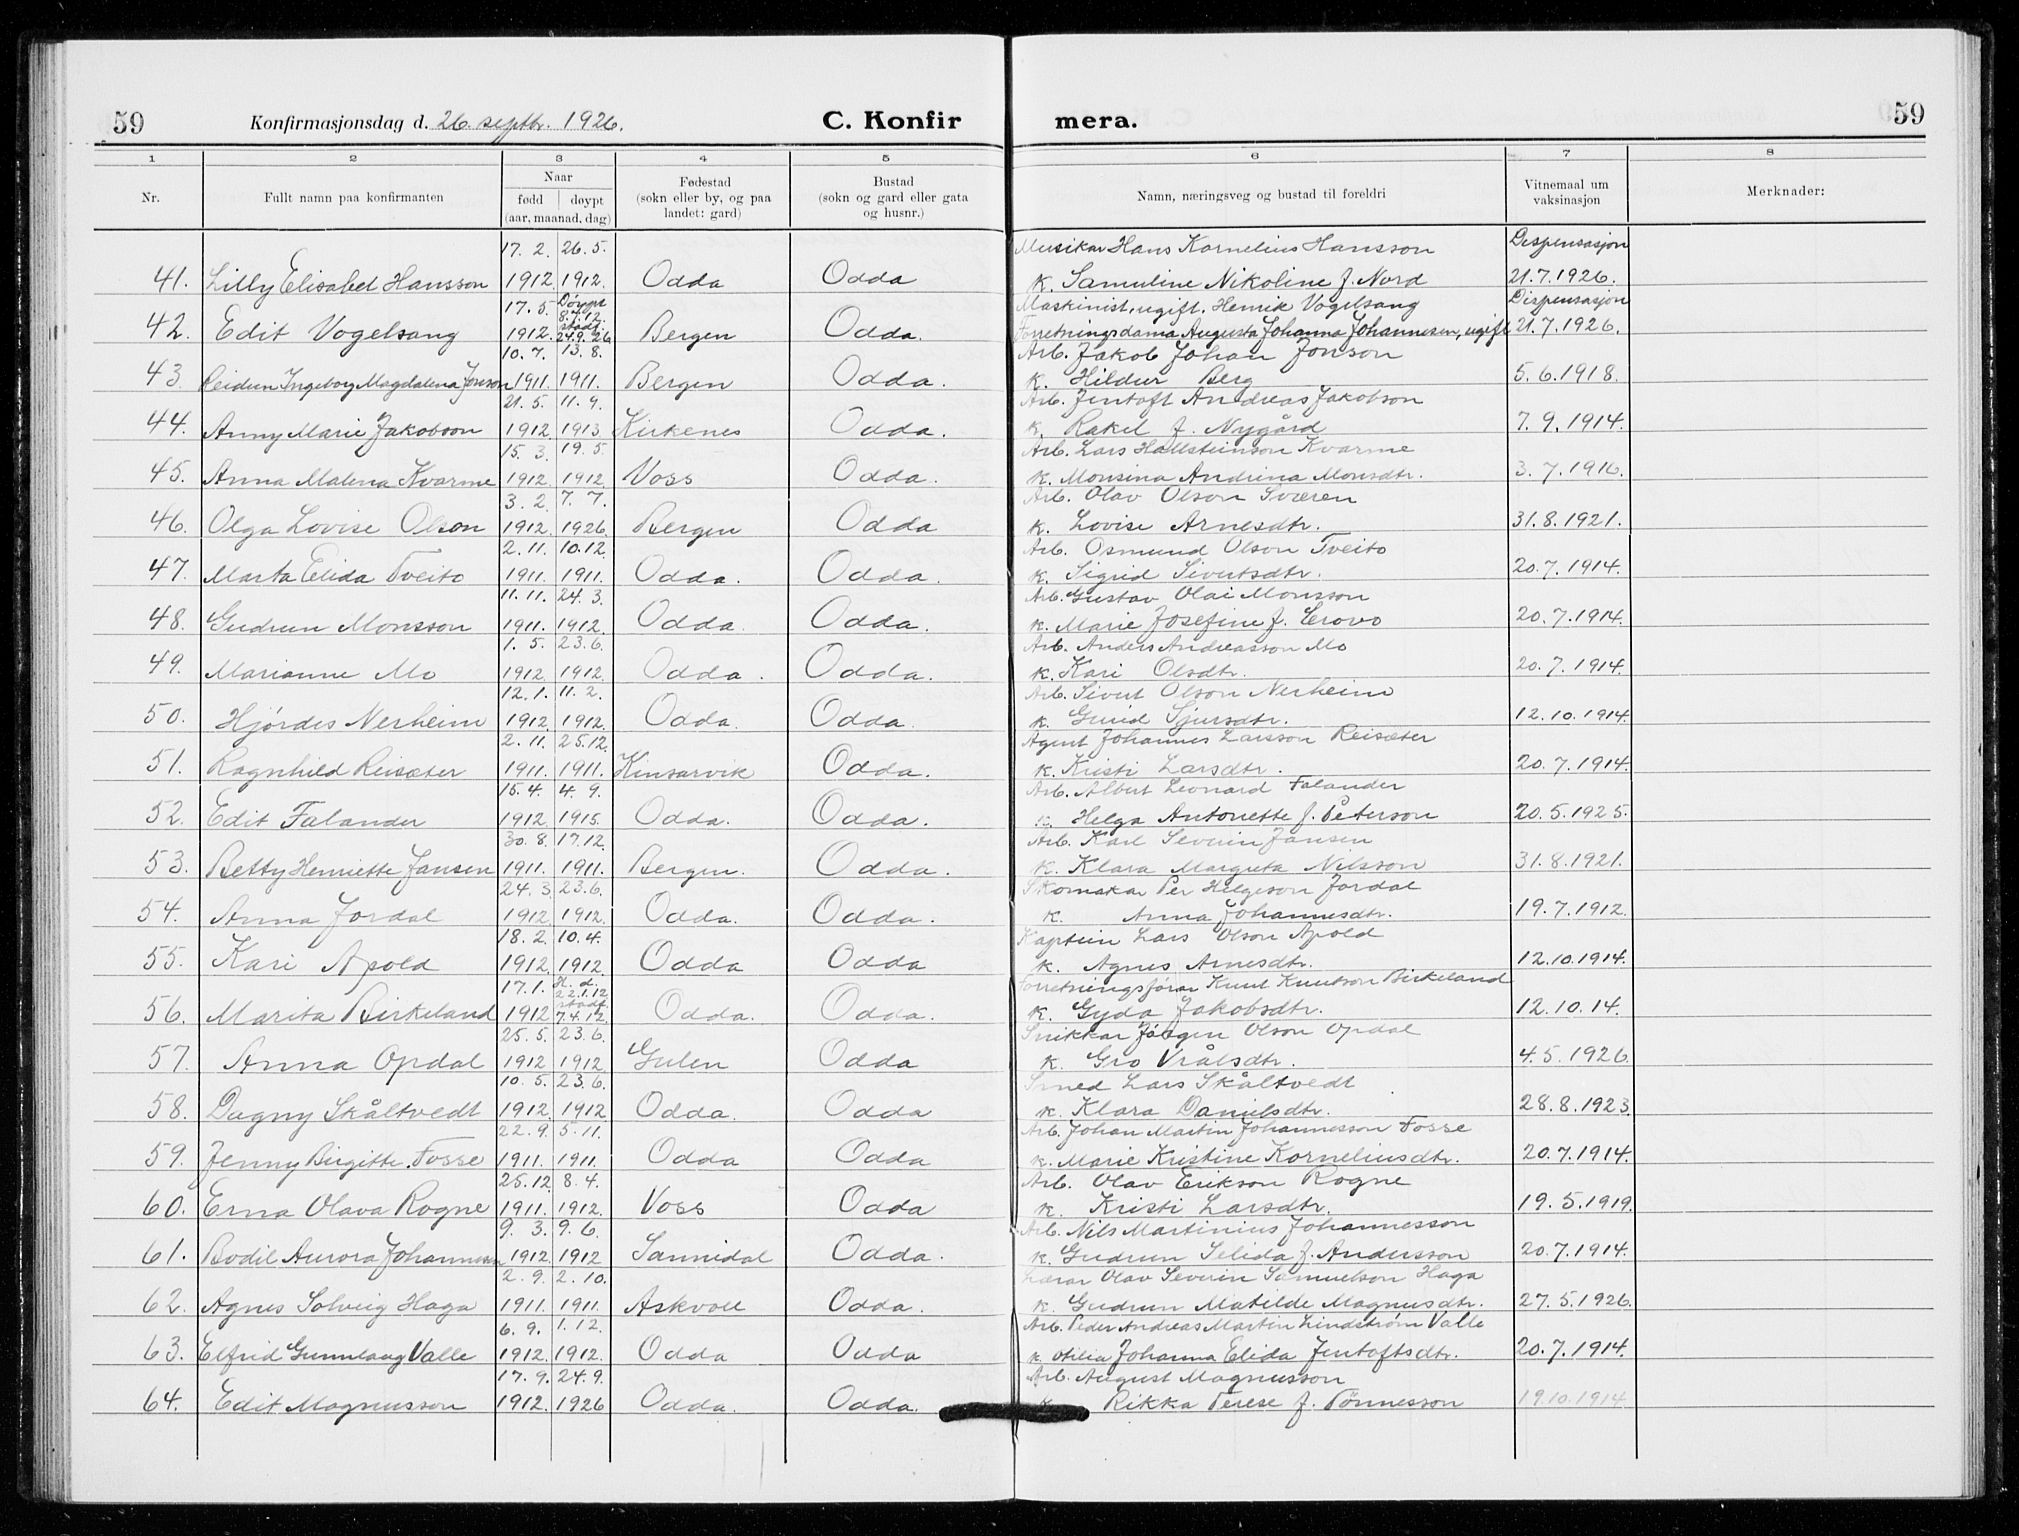 59 Konfirmasjonsdag d. 26. septbr. 1926. C. Konfir mera. 59
1 2 3 4 5 6 7 8
Nr. Fullt namn paa konfirmanten Naar Fødestad (sokn eller by, og paa landet: gard) Bustad (sokn og gard eller gata og husnr.) Namn, næringsveg og bustad til foreldri Vitnemaal um vaksinasjon Merknader:
fødd døypt
(aar, maanad, dag)
17. 2. 26. 5. Musikar Hans Kornelius Hansson Dispensasjon
41. Lilly Elisabet Hansson 1912. 1912. Odda Odda k. Samuline Nikoline f. Nord 21.7.1926.
17. 5. Døypt 8.7.12. Maskinist, ugift, Henrik Vogelsang Dispensasjon
42. Edit Vogelsang 1912. stadf. 24.9.26 Bergen Odda. Forretningsdama Augusta Johanna Johannesen, ugift 21.7.1926.
10. 7. 13. 8. Arb. Jakob Johan Jonson
43. Reidun Ingeborg Magdalena Jonson 1911. 1911. Bergen Odda. k. Hildur Berg 5.6.1918.
21. 5. 11. 9. Arb. Jentoft Andreas Jakobson
44. Anny Marie Jakobson 1912 1913 Kirkenes Odda. k. Rakel f. Nygård 7.9.1914.
15. 3. 19. 5. Arb. Lars Hallsteinson Kvarme
45. Anna Malena Kvarme 1912 1912. Voss Odda. k. Monsina Andrina Monsdtr. 3.7.1916.
3. 2. 7. 7. Arb. Olav Olson Sværen
46. Olga Lovise Olson 1912. 1926. Bergen Odda k. Lovise Arnesdtr. 31.8.1921.
2. 11. 10.12. Arb. Osmund Olson Tveito
47. Marta Elida Tveito 1911. 1911. Odda. Odda. k. Sigrid Sivertsdtr. 20.7.1914.
11. 11. 24. 3. Arb. Gustav Olai Monsson
48. Gudrun Monsson 1911. 1912. Odda. Odda. k. Marie Josefine f. Erovo 20.7.1914.
1. 5. 23. 6. Arb. Anders Andreasson Mo
49. Marianne Mo 1912. 1912. Odda. Odda. k. Kari Olsdtr. 20.7.1914.
12. 1. 11. 2. Arb. Sivert Olson Nerheim
50. Hjørdis Nerheim 1912. 1912. Odda. Odda. k. Gurid Sjursdtr. 12.10.1914.
2. 11. 25.12. Agent Johannes Larsson Reisæter
51. Ragnhild Reisæter 1911. 1911. Kinsarvik Odda. k. Kristi Larsdtr. 20.7.1914.
15. 4. 4. 9. Arb. Albert Leonard Falander
52. Edit Falander 1912. 1915. Odda. Odda. k. Helga Antonette f. Peterson 20.5.1925.
30. 8. 17.12. Arb. Karl Severin Jansen
53. Betty Henriette Jansen 1911. 1911. Bergen. Odda. k. Klara Margreta Nilsson 31.8.1921.
24. 3. 23. 6. Skomakar Per Helgeson Jordal
54. Anna Jordal 1912 1912. Odda. Odda. k. Anna Johannesdtr. 19.7.1912.
18. 2. 10. 4. Kaptein Lars Olson Apold
55. Kari Apold 1912. 1912. Odda Odda k. Agnes Arnesdtr. 12.10.1914.
17. 1. H. d. 22.1.12 Forretningsførar Knut Knutson Birkeland
56. Marita Birkeland 1912 stadf. 7.4.12. Odda. Odda. k. Gyda Jakobsdtr. 12.10.14.
25. 5. 23. 6. Snikkar Jørgen Olson Opdal
57. Anna Opdal 1912 1912 Gulen Odda k. Gro Vrålsdtr. 4.5.1926.
10. 5. 23. 6. Smed Lars Skåltvedt
58. Dagny Skåltvedt 1912. 1912 Odda. Odda k. Klara Danielsdtr. 28.8.1923.
22. 9. 5. 11. Arb. Johan Martin Johannesson Fosse
59. Jenny Birgitte Fosse 1911. 1911. Odda Odda k. Marie Kristine Korneliusdtr. 20.7.1914.
25. 12. 8. 4. Arb. Olav Erikson Rogne
60. Erna Olava Rogne 1911. 1912. Voss Odda k. Kristi Larsdtr. 19.5.1919.
9. 3. 9. 6. Arb. Nils Martinius Johannesson
61. Bodil Aurora Johannesen 1912. 1912 Sannidal Odda. k. Gudrun Selida f. Andersson 20.7.1914.
2. 9. 2. 10. Lærar Olav Severin Samuelson Haga
62. Agnes Solveig Haga 1911. 1911. Askvoll Odda. k. Gudrun Matilde Magnusdtr. 27.5.1926.
6. 9. 1. 12. Arb. Peder Andreas Martin Lindstrøm Valle
63. Elfrid Gunnlaug Valle 1912. 1912. Odda Odda k. Otilia Johanna Elida Jentoftsdtr. 20.7.1914.
17. 9. 24. 9. Arb. August Magnusson
64. Edit Magnusson 1912. 1926 Odda. Odda. k. Rikka Terese f. Tönnesson 19.10.1914.